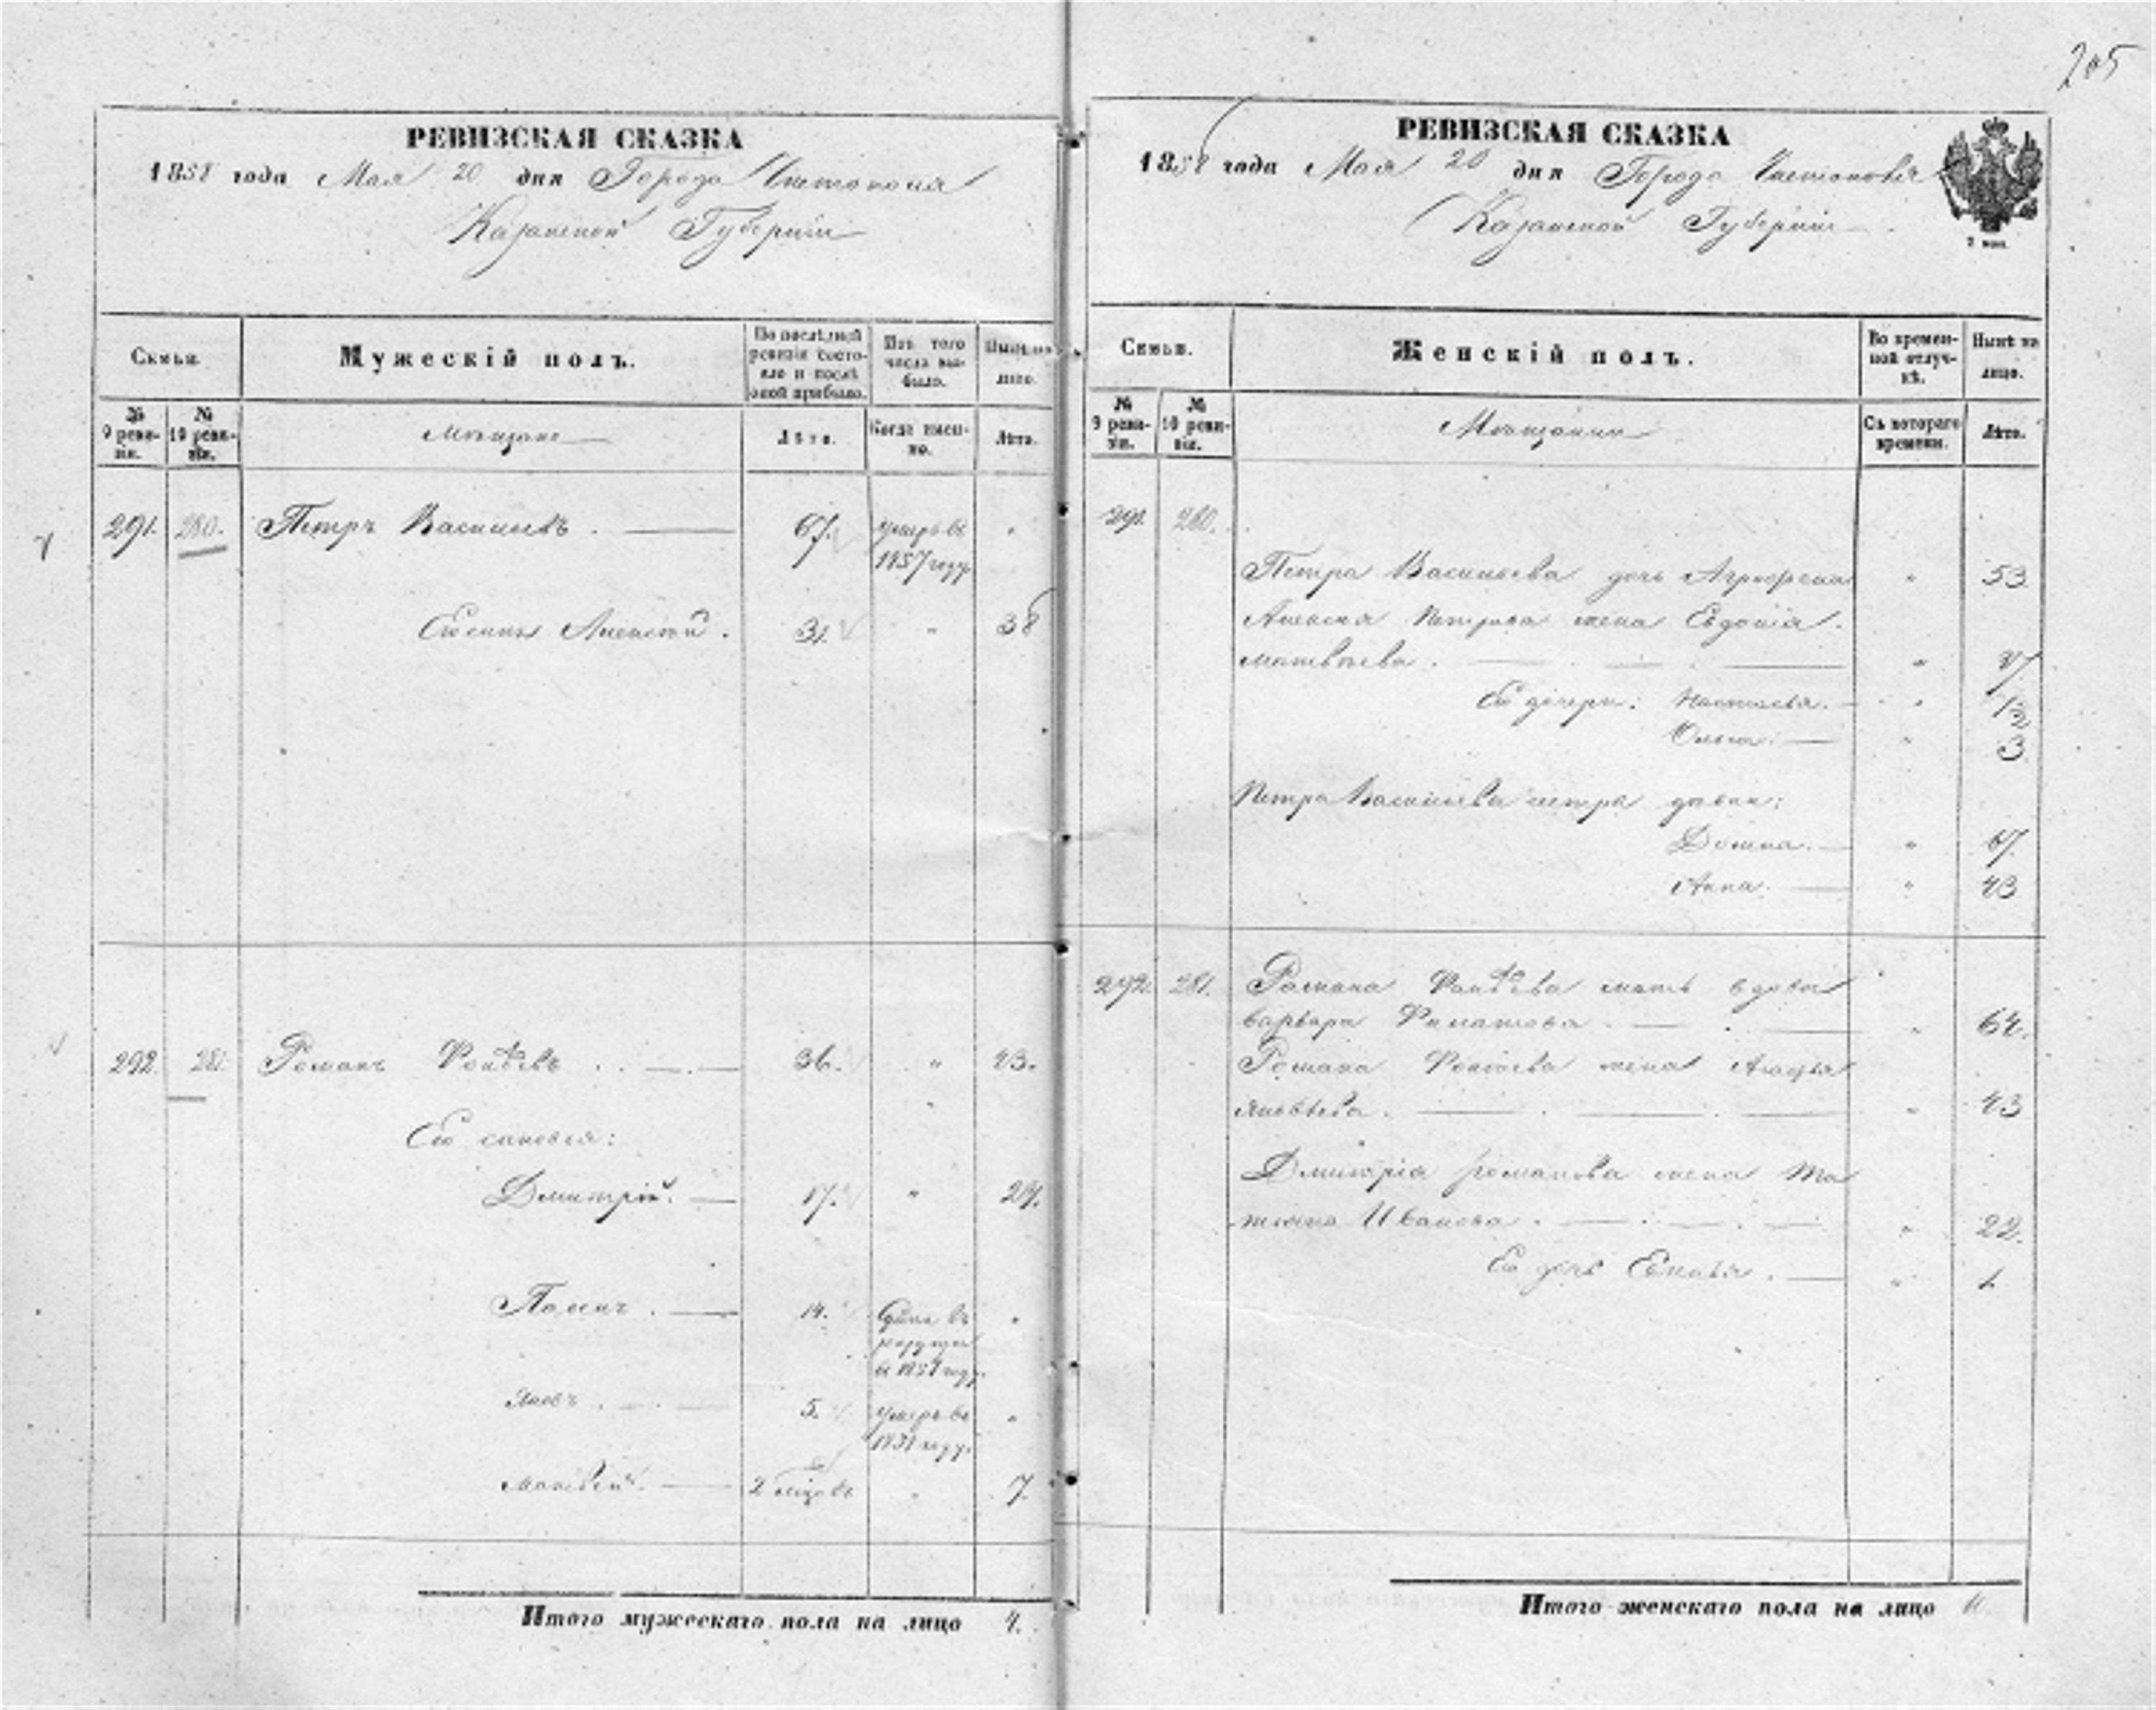 205
РЕВИЗСКАЯ СКАЗКА
1858 года Мая 20 дня Города Чистополя
Казанской Губерніи
Семьи.
Мужескій полъ.
По послѣдней ревизіи состояло и послѣ оной прибыло.
Изъ того числа выбыло.
Нынѣ на лицо.
№ 9 ревизіи.
№ 10 ревизіи.
Мѣщане
Лѣта.
Когда именно.
Лѣта.
291. 280. Петръ Васильевъ. 67. умеръ въ
1857 году "
Его сынъ Алексѣй. 31. " 38
292. 281. Романъ 36. " 43.
Его сыновья:
Дмитрій. 17. " 24.
14. въ
"
Яковъ 5. умеръ въ
году. "
Матвѣй. 2 " 7.
Итого мужескаго пола на лицо 4.
РЕВИЗСКАЯ СКАЗКА
1858 года Мая 20 дня Города Чистополя
Казанской Губерніи
2 коп.
Семьи.
Женскій полъ.
Во временной отлучкѣ.
Нынѣ на лицо.
№ 9 ревизіи.
№ 10 ревизіи.
Мѣщанки
Съ котораго времени.
Лѣта.
291. 280.
Петра Васильева дочь Агрофена " 53
Алексѣя Петрова жена Евдокія
Матвѣева. "
Его дочери: Настасья. " 1/2
Ольга. " 3
Петра Васильева сестры девки:
Домна. " 67.
Анна. " 43
292. 281. Романа мать вдова
Варвара " 64.
Романа жена Агафья
Яковлева. " 43
Дмитрія Романова жена Та
тьяна Иванова. " 22.
Его дочь "
Итого женскаго пола на лицо